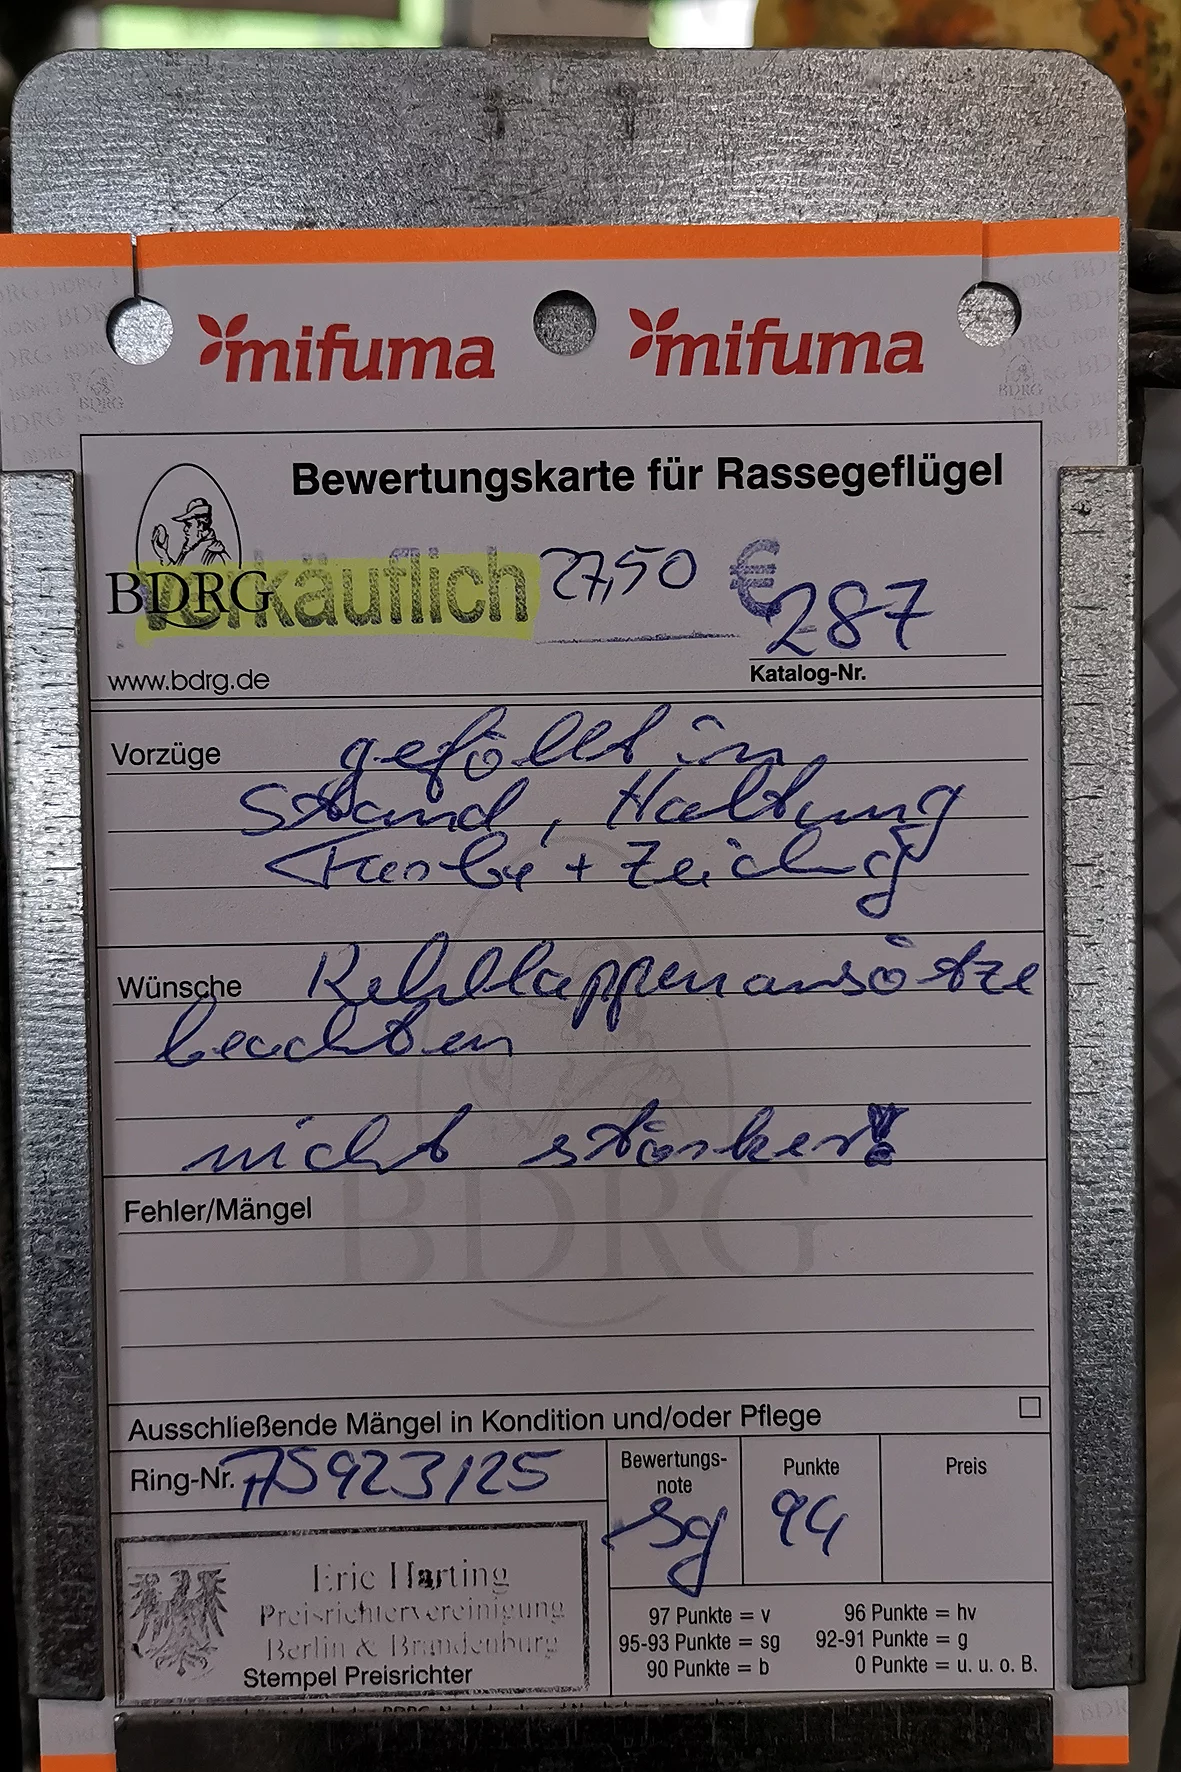 mifuma mifuma
Bewertungskarte für Rassegeflügel
BDRG
verkäuflich 27,50 €
287
www.bdrg.de
Katalog-Nr.
Vorzüge gefällt in
Stand, Haltung
Farbe + Zeichg
Wünsche Kehllappenansätze
beachten
nicht stärker!
BDRG
Fehler/Mängel
Ausschließende Mängel in Kondition und/oder Pflege
Ring-Nr. AS923/25
Bewertungs-
note
Punkte
Preis
sg 94
Eric Harting
Preisrichtervereinigung
Berlin & Brandenburg
Stempel Preisrichter
97 Punkte = v 96 Punkte = hv
95-93 Punkte = sg 92-91 Punkte = g
90 Punkte = b 0 Punkte = u. u. o. B.